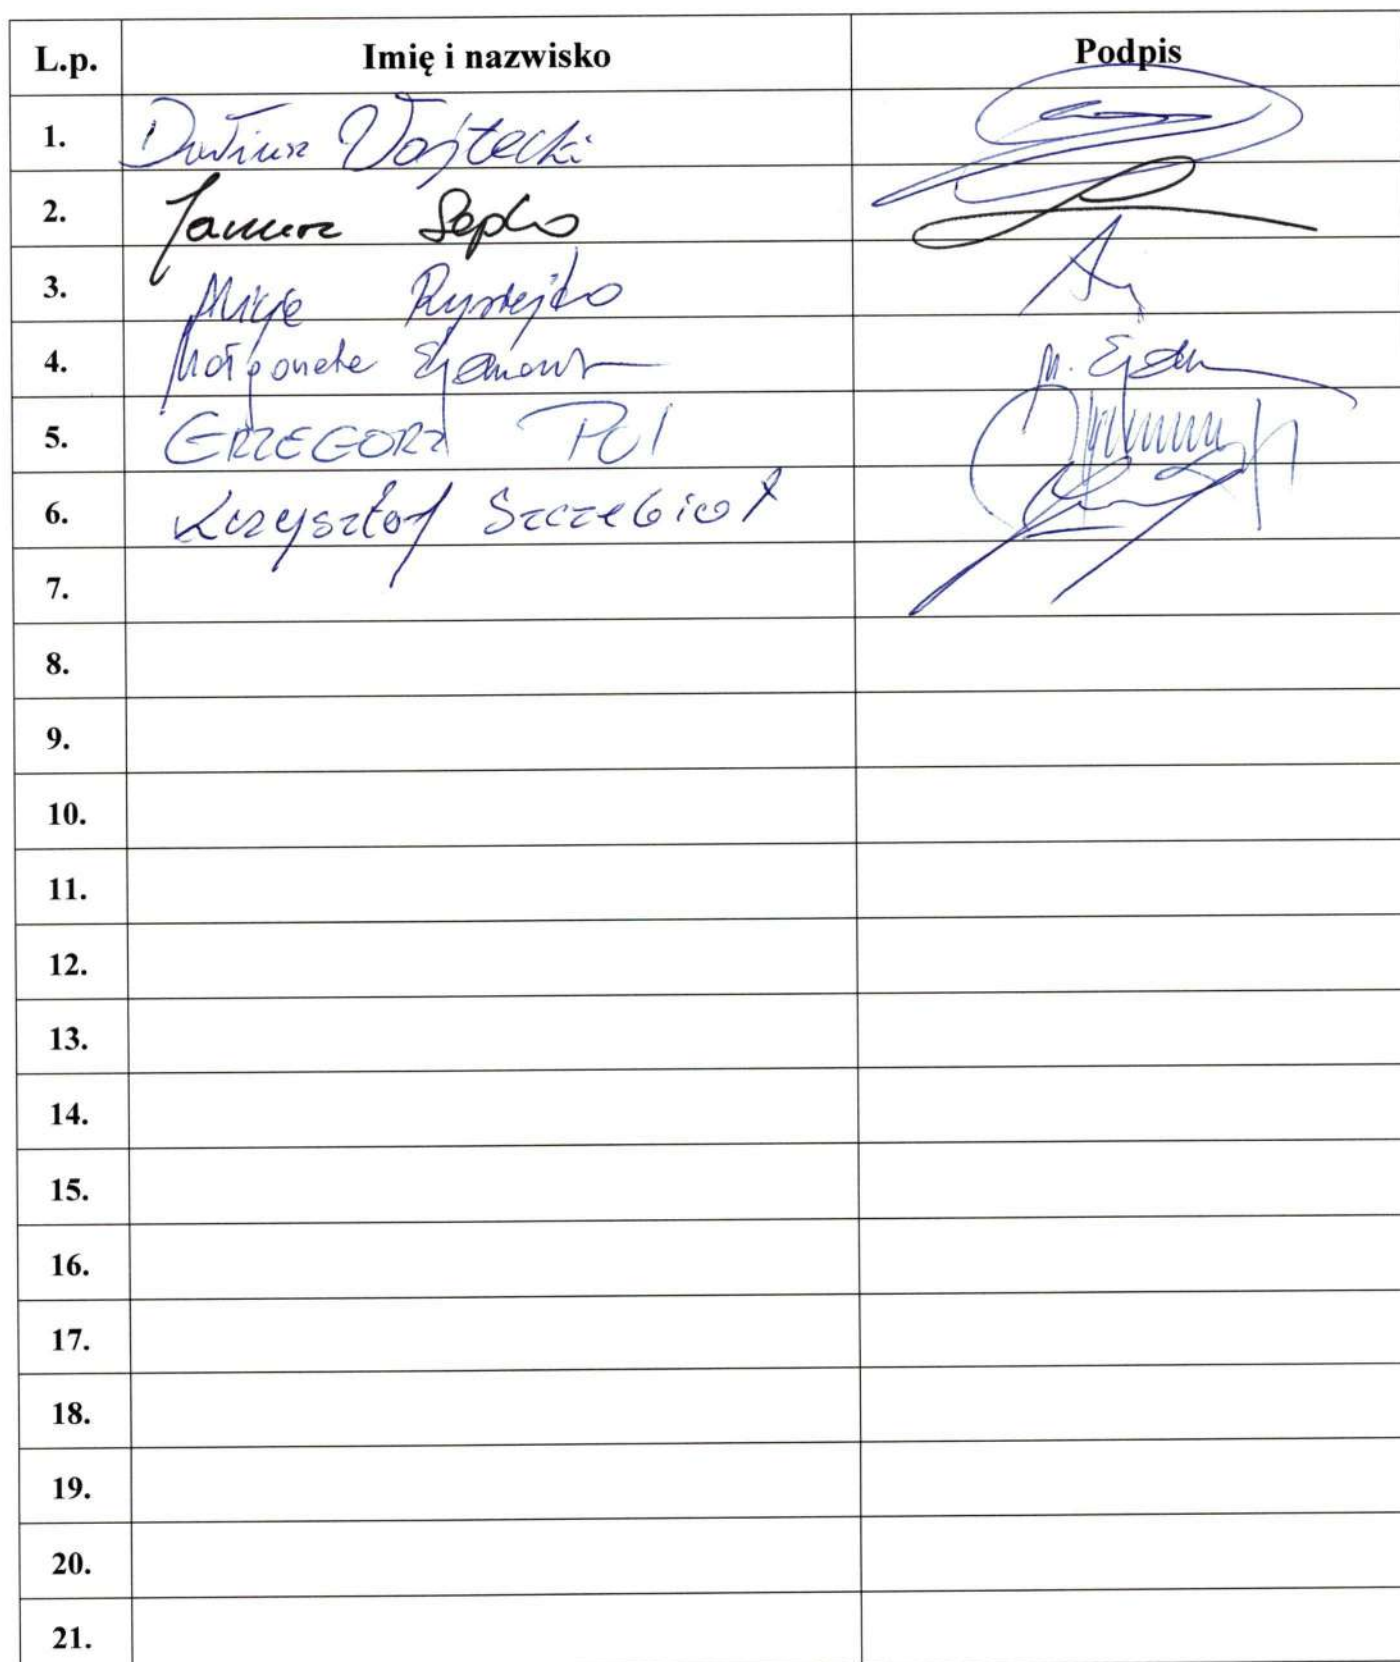 L.p. Imię i nazwisko Podpis
1. Dariusz Wojtecki
2. Janusz Sepko
3. Alicja Rysiejko
4. Małgorzata
5. GRZEGORZ PUL
6. Krzysztof Szczebiot
7.
8.
9.
10.
11.
12.
13.
14.
15.
16.
17.
18.
19.
20.
21.